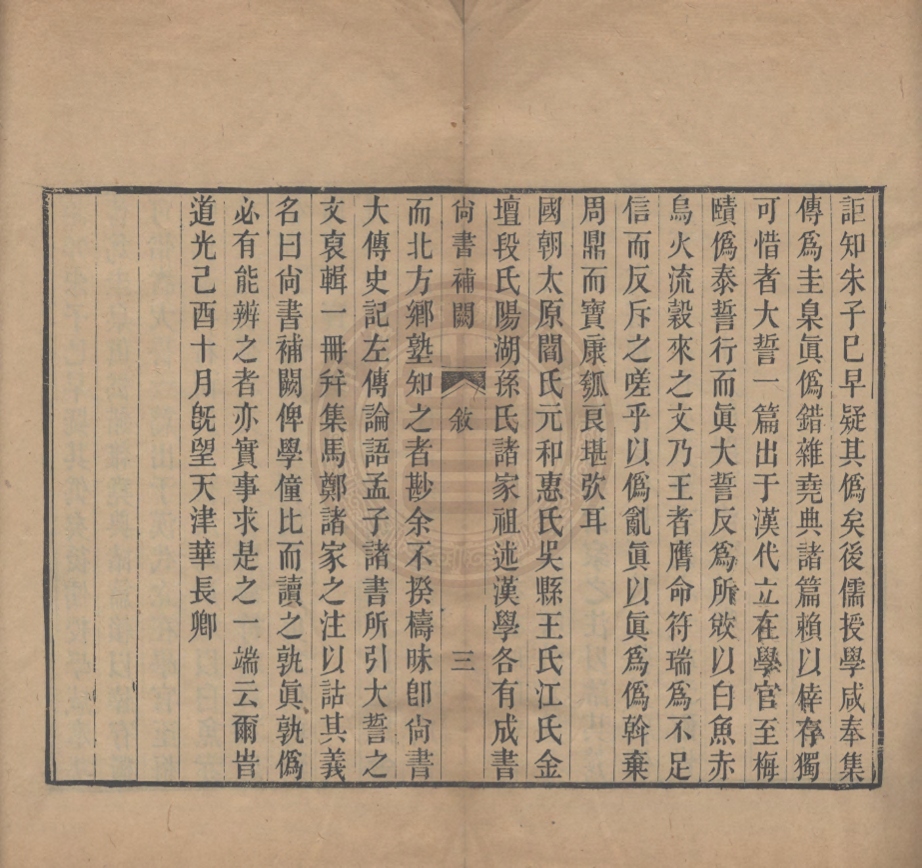 詎知朱子已早疑其僞矣後儒授學咸奉集
傳爲圭臬眞僞錯雜堯典諸篇賴以倖存獨
可惜者大誓一篇出于漢代立在學官至梅
賾僞泰誓行而眞大誓反爲所敚以白魚赤
烏火流穀來之文乃王者膺命符瑞爲不足
信而反斥之嗟乎以僞亂眞以眞爲僞斡棄
周鼎而寶康瓠良堪㰞耳
國朝太原閻氏元和惠氏吳縣王氏江氏金
壇段氏陽湖孫氏諸家祖述漢學各有成書
尙書補闕
敘
三
而北方鄉塾知之者尠余不揆檮昧卽尙書
大傳史記左傳論語孟子諸書所引大誓之
文裒輯一冊幷集馬鄭諸家之注以詁其義
名曰尙書補闕俾學僮比而讀之孰眞孰僞
必有能辨之者亦實事求是之一端云爾旹
道光己酉十月旣望天津華長卿